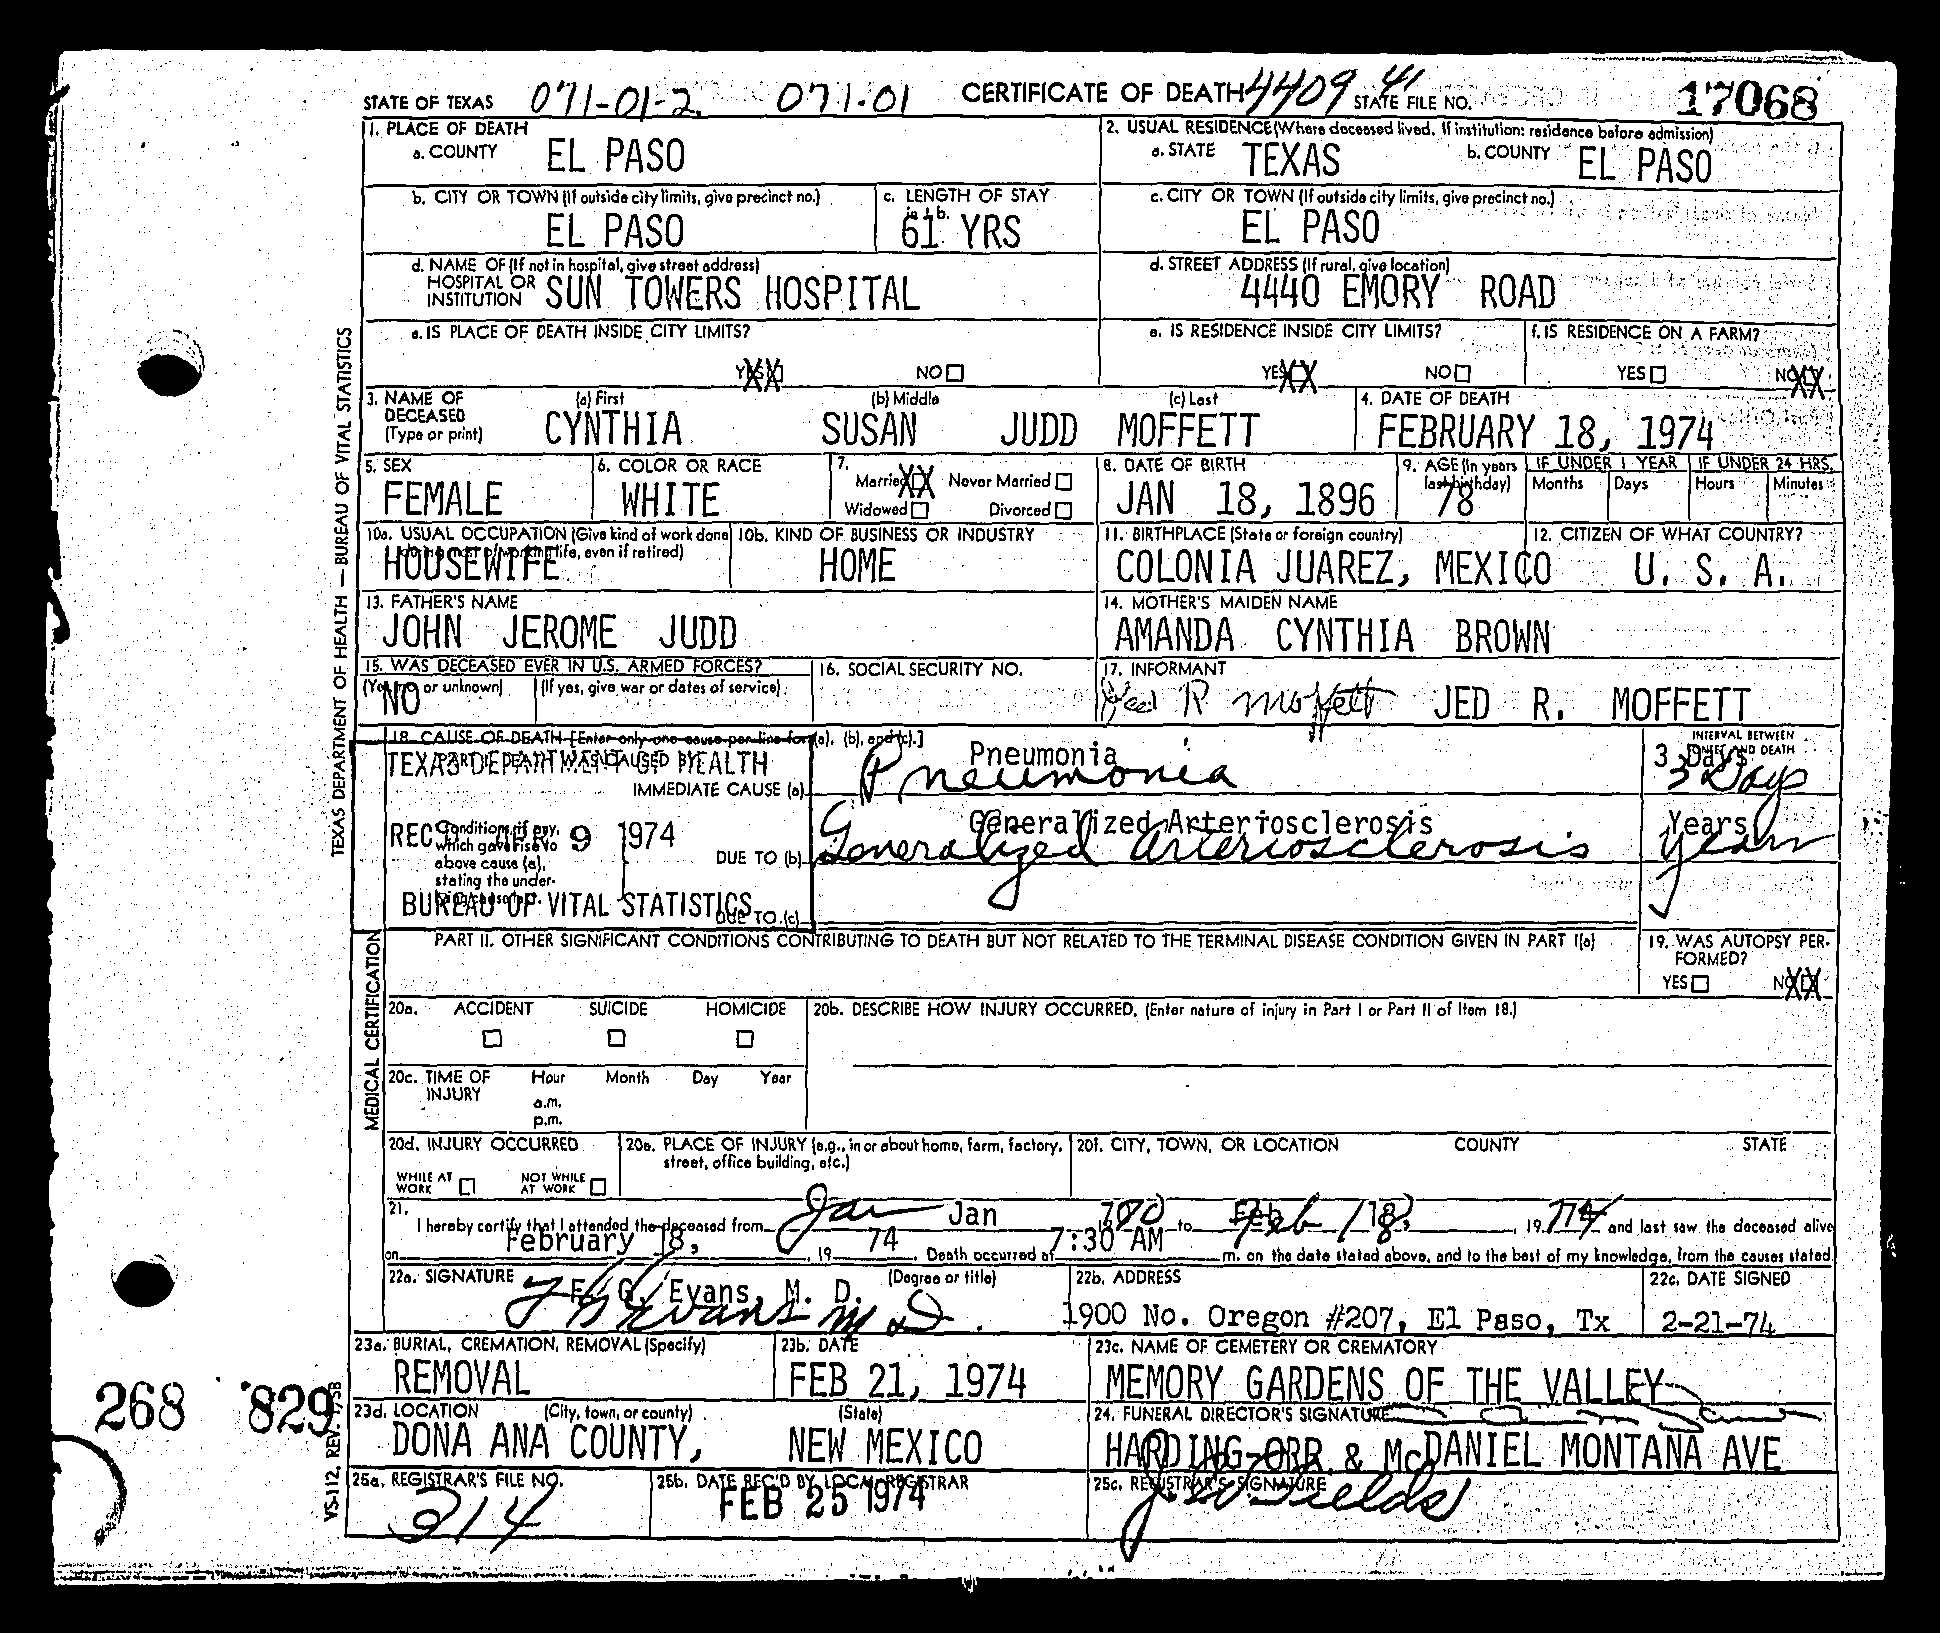 STATE OF TEXAS 071-01-2. 071-01 CERTIFICATE OF DEATH 4409 41 STATE FILE NO. 17068
1. PLACE OF DEATH
a. COUNTY EL PASO
2. USUAL RESIDENCE (Where deceased lived. If institution: residence before admission)
a. STATE TEXAS b. COUNTY EL PASO
b. CITY OR TOWN (If outside city limits, give precinct no.) EL PASO
c. LENGTH OF STAY in 1b. 61 YRS
c. CITY OR TOWN (If outside city limits, give precinct no.) EL PASO
d. NAME OF (If not in hospital, give street address)
HOSPITAL OR
INSTITUTION SUN TOWERS HOSPITAL
d. STREET ADDRESS (If rural, give location)
4440 EMORY ROAD
e. IS PLACE OF DEATH INSIDE CITY LIMITS?
YES XX NO
e. IS RESIDENCE INSIDE CITY LIMITS?
YES XX NO
f. IS RESIDENCE ON A FARM?
YES NO XX
3. NAME OF DECEASED (Type or print)
(a) First (b) Middle (c) Last
CYNTHIA SUSAN JUDD MOFFETT
4. DATE OF DEATH
FEBRUARY 18, 1974
5. SEX
FEMALE
6. COLOR OR RACE
WHITE
7.
Married XX Never Married
Widowed Divorced
8. DATE OF BIRTH
JAN 18, 1896
9. AGE (In years last birthday)
78
IF UNDER 1 YEAR IF UNDER 24 HRS.
Months Days Hours Minutes
10a. USUAL OCCUPATION (Give kind of work done during most of working life, even if retired)
HOUSEWIFE
10b. KIND OF BUSINESS OR INDUSTRY
HOME
11. BIRTHPLACE (State or foreign country)
COLONIA JUAREZ, MEXICO
12. CITIZEN OF WHAT COUNTRY?
U. S. A.
13. FATHER'S NAME
JOHN JEROME JUDD
14. MOTHER'S MAIDEN NAME
AMANDA CYNTHIA BROWN
15. WAS DECEASED EVER IN U.S. ARMED FORCES?
(Yes, no or unknown) (If yes, give war or dates of service)
NO
16. SOCIAL SECURITY NO.
17. INFORMANT
Jed R Moffett JED R. MOFFETT
18. CAUSE OF DEATH [Enter only one cause per line for (a), (b), and (c).]
PART I. DEATH WAS CAUSED BY
TEXAS DEPARTMENT OF HEALTH
IMMEDIATE CAUSE (a)
Pneumonia
Pneumonia
INTERVAL BETWEEN
ONSET AND DEATH
3 Days
3 Days
REC 9 1974
Conditions, if any,
which gave rise to
above cause (a),
stating the under-
lying cause last.
DUE TO (b)
Generalized Arteriosclerosis
Generalized Arteriosclerosis
Years
Years
BUREAU OF VITAL STATISTICS
DUE TO (c)
PART II. OTHER SIGNIFICANT CONDITIONS CONTRIBUTING TO DEATH BUT NOT RELATED TO THE TERMINAL DISEASE CONDITION GIVEN IN PART I(a)
19. WAS AUTOPSY PER-
FORMED?
YES NO XX
20a. ACCIDENT SUICIDE HOMICIDE
20b. DESCRIBE HOW INJURY OCCURRED. (Enter nature of injury in Part I or Part II of Item 18.)
20c. TIME OF INJURY Hour Month Day Year
a.m.
p.m.
20d. INJURY OCCURRED
WHILE AT WORK NOT WHILE AT WORK
20e. PLACE OF INJURY (e.g., in or about home, farm, factory, street, office building, etc.)
20f. CITY, TOWN, OR LOCATION COUNTY STATE
21.
I hereby certify that I attended the deceased from Jan Jan to Feb 18, 19 74 and last saw the deceased alive
on February 18, 19 74. Death occurred at 7:30 AM m. on the date stated above, and to the best of my knowledge, from the causes stated.
22a. SIGNATURE (Degree or title)
F. G. Evans, M. D.
Evans M.D.
22b. ADDRESS
1900 No. Oregon #207, El Paso, Tx
22c. DATE SIGNED
2-21-74
23a. BURIAL, CREMATION, REMOVAL (Specify)
REMOVAL
23b. DATE
FEB 21, 1974
23c. NAME OF CEMETERY OR CREMATORY
MEMORY GARDENS OF THE VALLEY
23d. LOCATION (City, town, or county) (State)
DONA ANA COUNTY, NEW MEXICO
24. FUNERAL DIRECTOR'S SIGNATURE
HARDING-ORR & McDANIEL MONTANA AVE
25a. REGISTRAR'S FILE NO.
214
25b. DATE REC'D BY LOCAL REGISTRAR
FEB 25 1974
25c. REGISTRAR'S SIGNATURE
Fields
TEXAS DEPARTMENT OF HEALTH — BUREAU OF VITAL STATISTICS
MEDICAL CERTIFICATION
268 829
VS-112, REV.